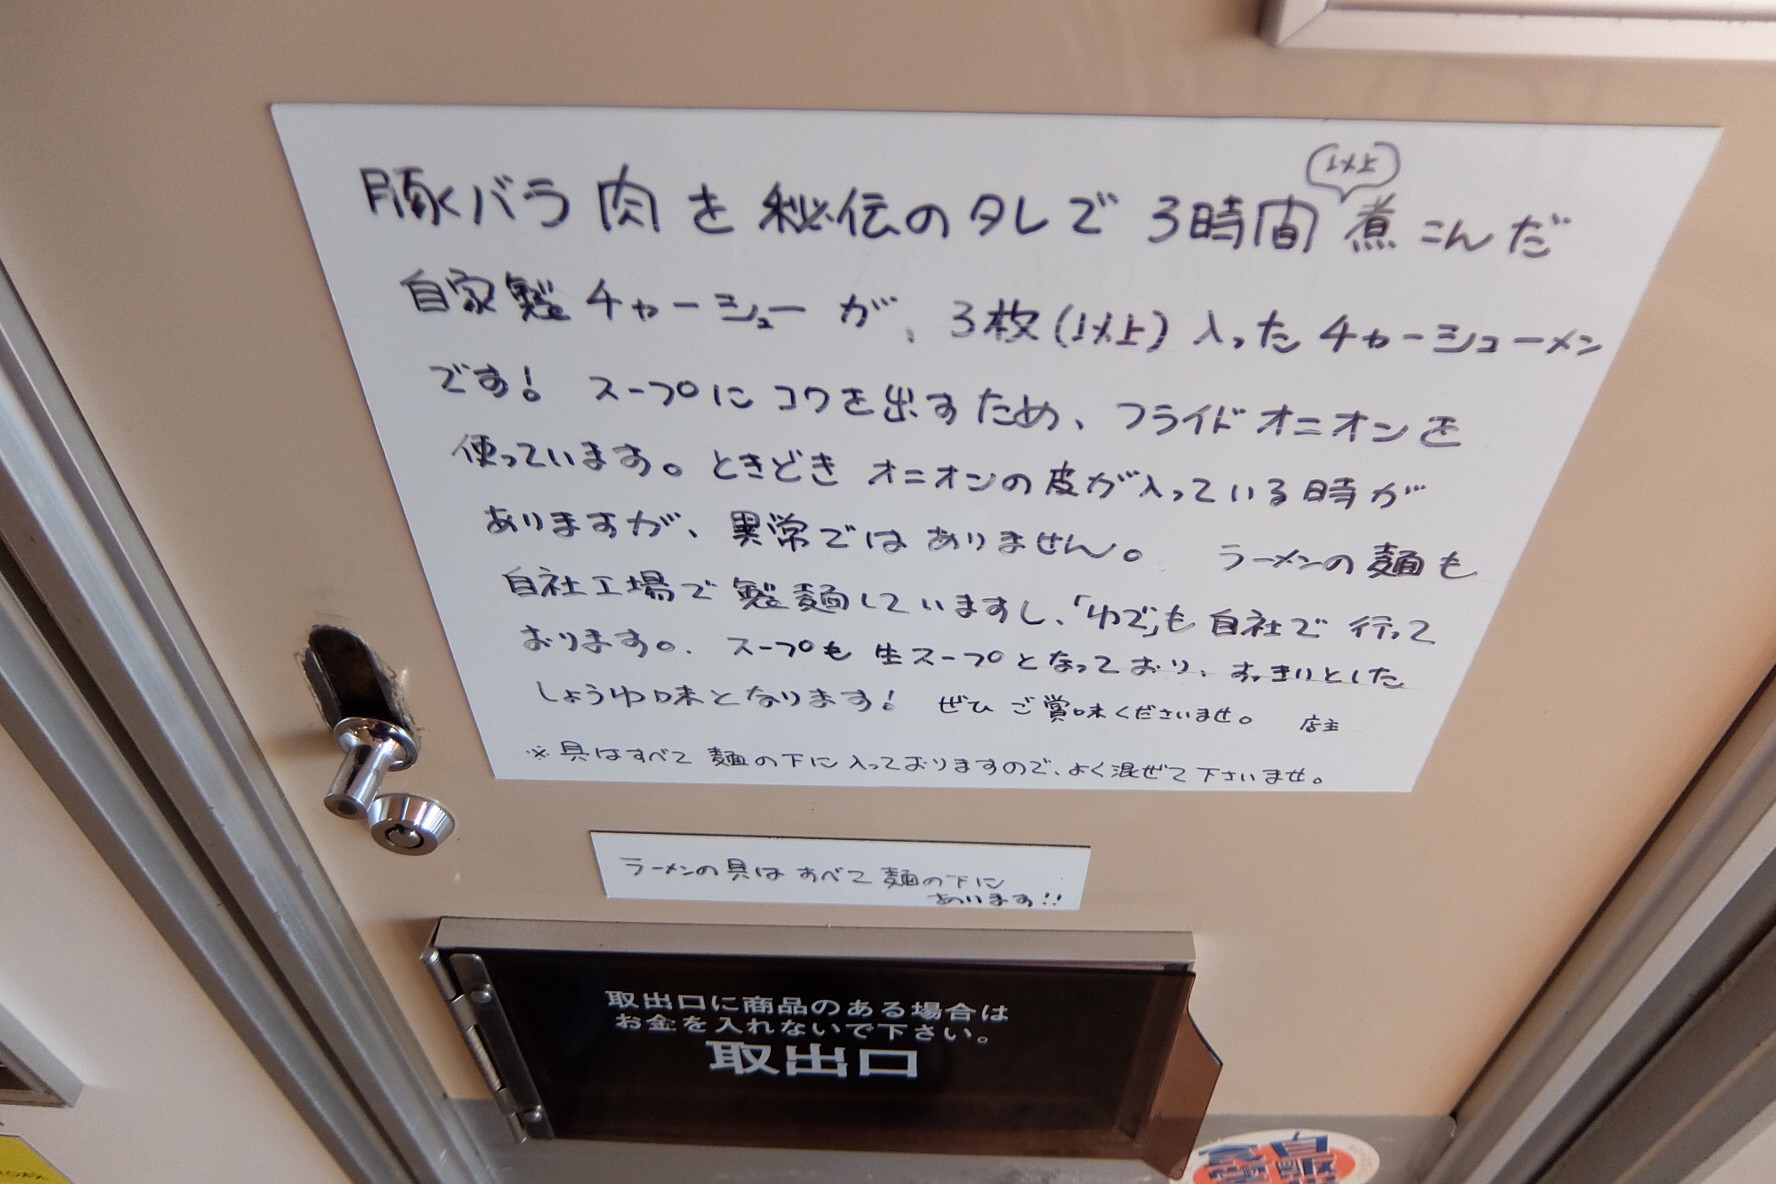 豚バラ肉を秘伝のタレで3時間以上煮こんだ
自家製チャーシューが、3枚(以上)入ったチャーシューメン
です! スープにコクを出すため、フライドオニオンを
使っています。ときどきオニオンの皮が入っている時が
ありますが、異常ではありません。 ラーメンの麺も
自社工場で製麺していますし、「ゆで」も自社で行って
おります。スープも生スープとなっており、すっきりとした
しょうゆ味となります! ぜひご賞味くださいませ。 店主
※具はすべて麺の下に入っておりますので、よく混ぜて下さいませ。
ラーメンの具はすべて麺の下に
あります!!
取出口に商品のある場合は
お金を入れないで下さい。
取出口